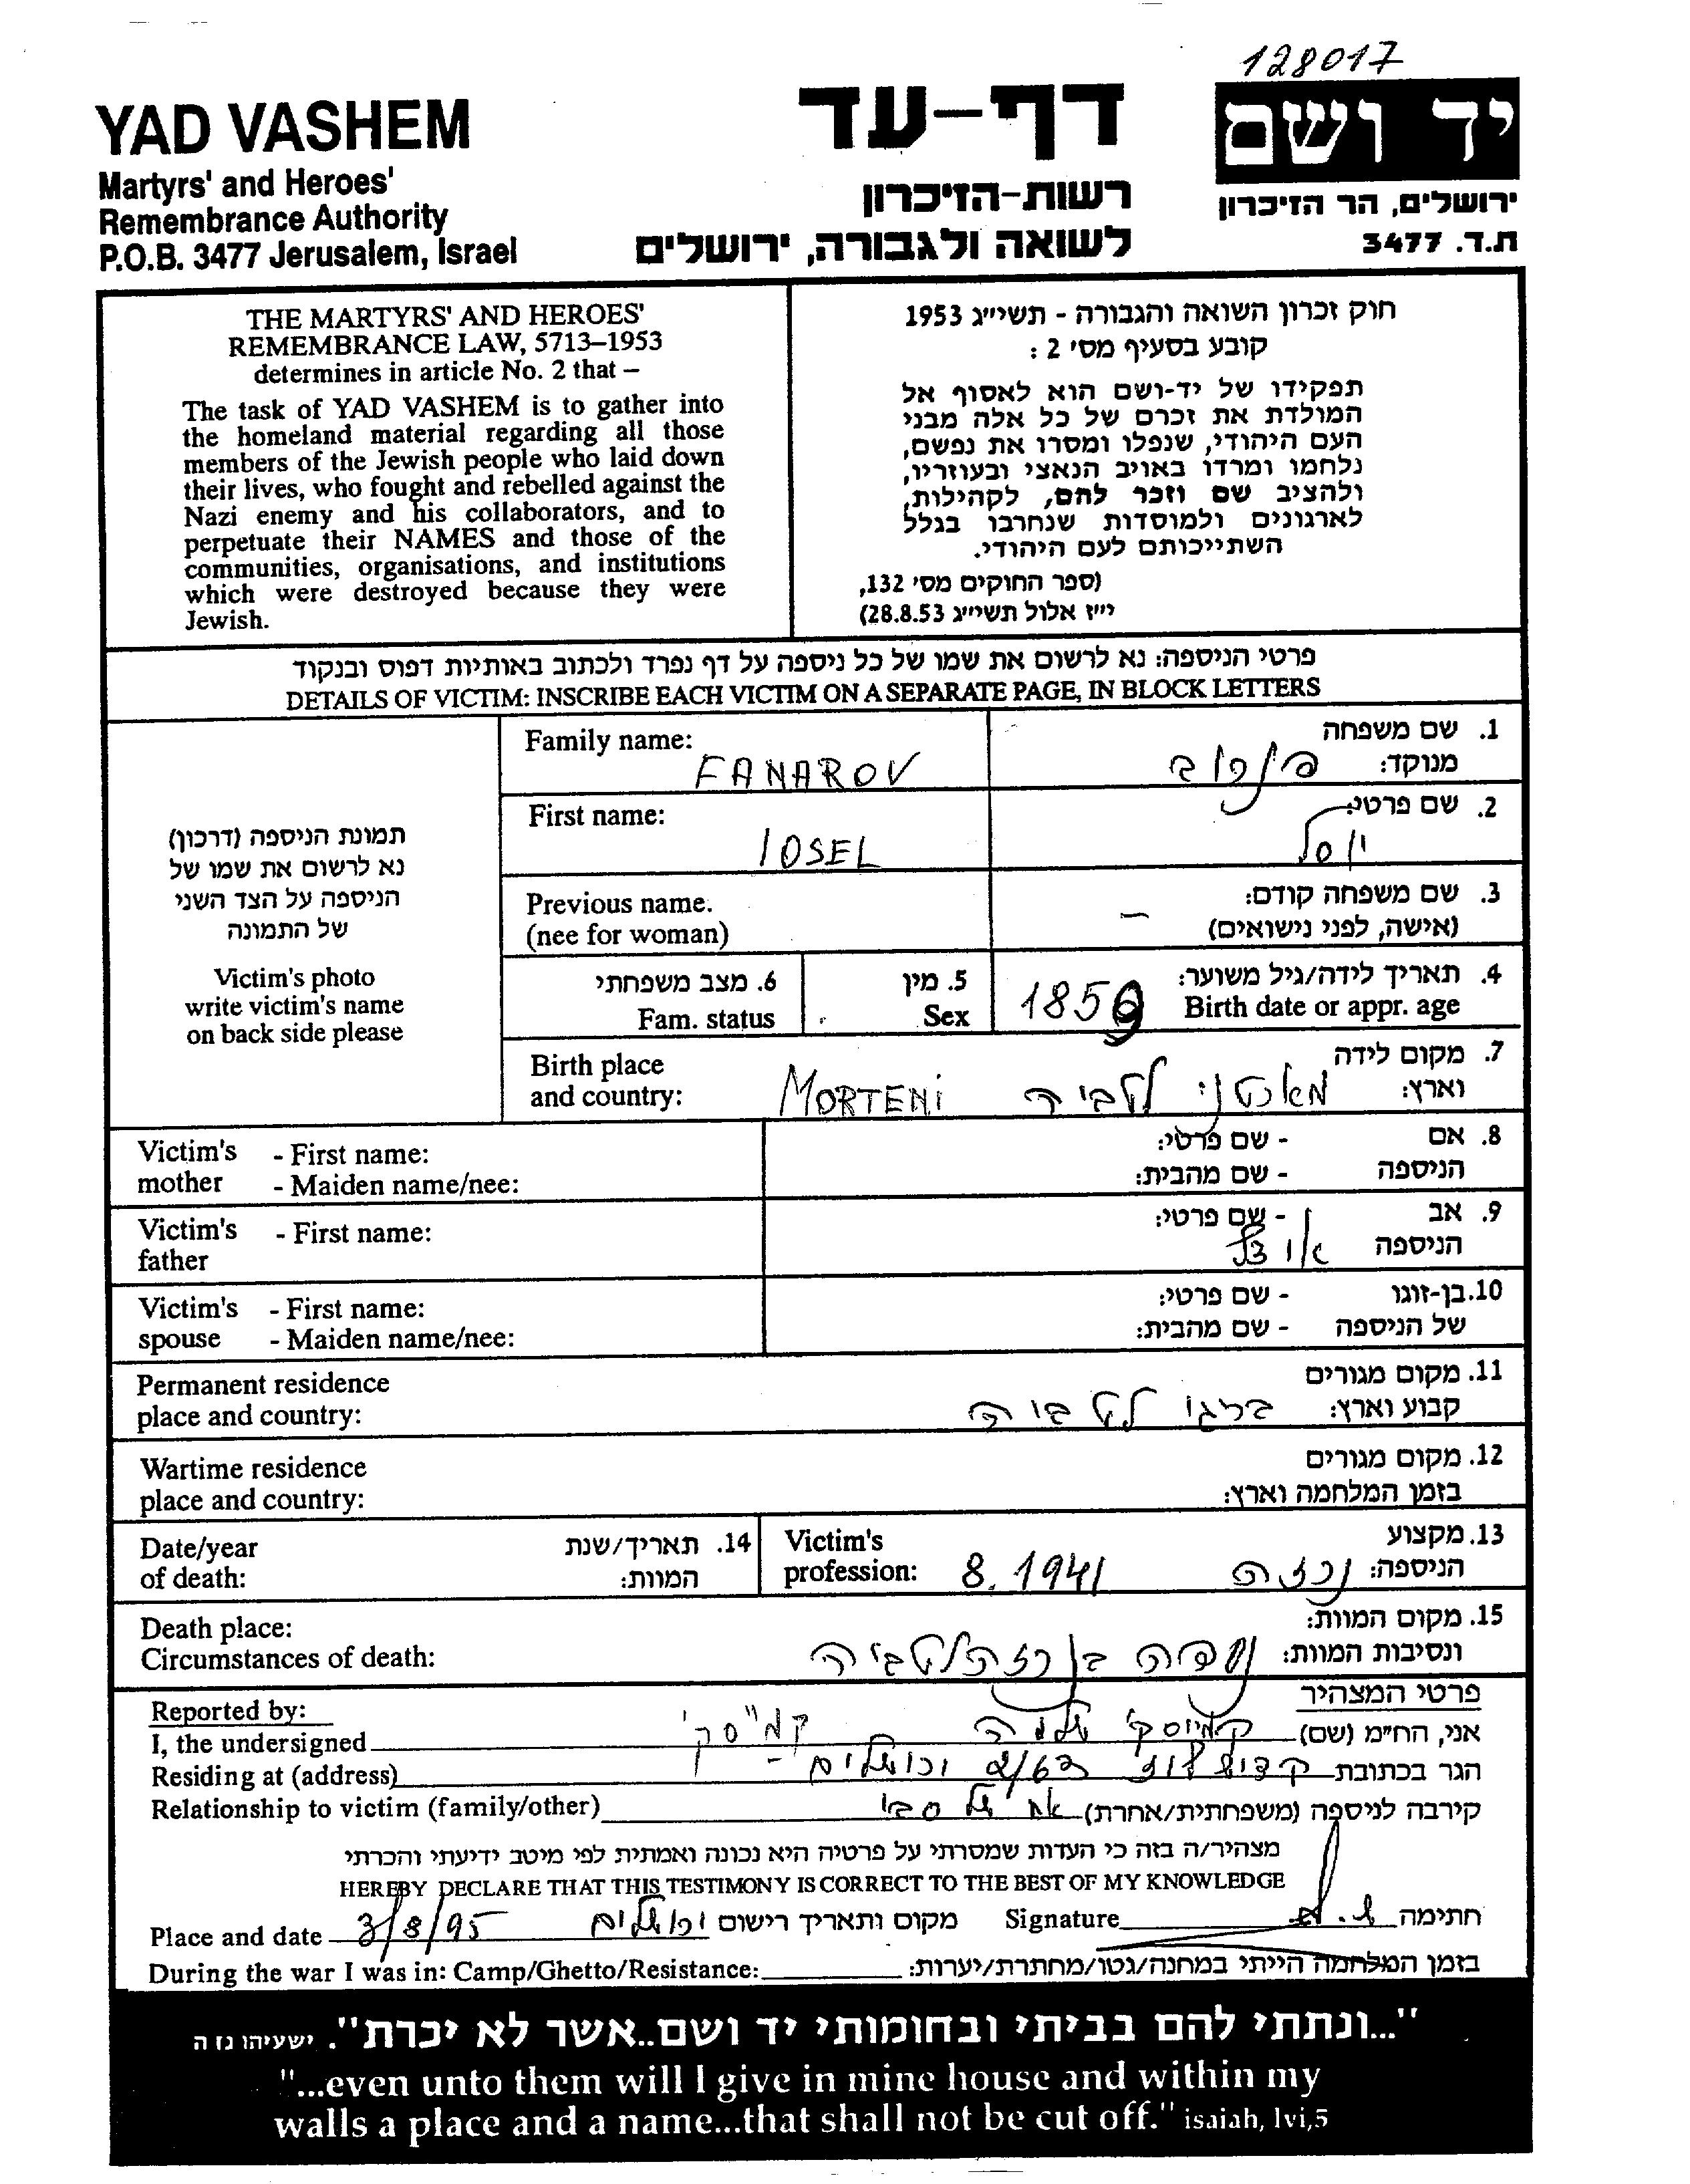 128017
YAD VASHEM
Martyrs' and Heroes'
Remembrance Authority
P.O.B. 3477 Jerusalem, Israel
דף-עד
רשות-הזיכרון
לשואה ולגבורה, ירושלים
יד ושם
ירושלים, הר הזיכרון
ת.ד. 3477
THE MARTYRS' AND HEROES'
REMEMBRANCE LAW, 5713–1953
determines in article No. 2 that –
The task of YAD VASHEM is to gather into
the homeland material regarding all those
members of the Jewish people who laid down
their lives, who fought and rebelled against the
Nazi enemy and his collaborators, and to
perpetuate their NAMES and those of the
communities, organisations, and institutions
which were destroyed because they were
Jewish.
חוק זכרון השואה והגבורה - תשי״ג 1953
קובע בסעיף מס' 2 :
תפקידו של יד-ושם הוא לאסוף אל
המולדת את זכרם של כל אלה מבני
העם היהודי, שנפלו ומסרו את נפשם,
נלחמו ומרדו באויב הנאצי ובעוזריו,
ולהציב שם וזכר להם, לקהילות,
לארגונים ולמוסדות שנחרבו בגלל
השתייכותם לעם היהודי.
(ספר החוקים מס' 132,
י״ז אלול תשי״ג 28.8.53)
פרטי הניספה: נא לרשום את שמו של כל ניספה על דף נפרד ולכתוב באותיות דפוס ובנקוד
DETAILS OF VICTIM: INSCRIBE EACH VICTIM ON A SEPARATE PAGE, IN BLOCK LETTERS
תמונת הניספה (דרכון)
נא לרשום את שמו של
הניספה על הצד השני
של התמונה
Victim's photo
write victim's name
on back side please
Family name: FANAROV
1. שם משפחה
מנוקד: פנרוב
First name: IOSEL
2. שם פרטי:
יוסל
Previous name.
(nee for woman)
3. שם משפחה קודם:
(אישה, לפני נישואים) –
6. מצב משפחתי
Fam. status
5. מין
Sex
4. תאריך לידה/גיל משוער:
Birth date or appr. age 1859
Birth place
and country: MORTENi
7. מקום לידה
וארץ: מארטני לטביה
Victim's mother - First name:
- Maiden name/nee:
8. אם הניספה - שם פרטי:
- שם מהבית:
Victim's father - First name:
9. אב הניספה - שם פרטי:
Victim's spouse - First name:
- Maiden name/nee:
10. בן-זוגו של הניספה - שם פרטי:
- שם מהבית:
Permanent residence
place and country:
11. מקום מגורים
קבוע וארץ: לטביה
Wartime residence
place and country:
12. מקום מגורים
בזמן המלחמה וארץ:
Date/year
of death:
14. תאריך/שנת
המוות:
Victim's
profession: 8.1941
13. מקצוע
הניספה:
Death place:
Circumstances of death:
15. מקום המוות:
ונסיבות המוות: נספה
Reported by:
פרטי המצהיר
I, the undersigned
אני, הח״מ (שם) שלמה
Residing at (address)
הגר בכתובת קדיש לוז 63/2 ירושלים
Relationship to victim (family/other)
קירבה לניספה (משפחתית/אחרת) אח של סבי
מצהיר/ה בזה כי העדות שמסרתי על פרטיה היא נכונה ואמתית לפי מיטב ידיעתי והכרתי
HEREBY DECLARE THAT THIS TESTIMONY IS CORRECT TO THE BEST OF MY KNOWLEDGE
Place and date 3/8/95
מקום ותאריך רישום ירושלים
Signature
חתימה
During the war I was in: Camp/Ghetto/Resistance:
בזמן המלחמה הייתי במחנה/גטו/מחתרת/יערות:
"...ונתתי להם בביתי ובחומותי יד ושם..אשר לא יכרת". ישעיהו נז ה
"...even unto them will I give in mine house and within my
walls a place and a name...that shall not be cut off." isaiah, lvi,5